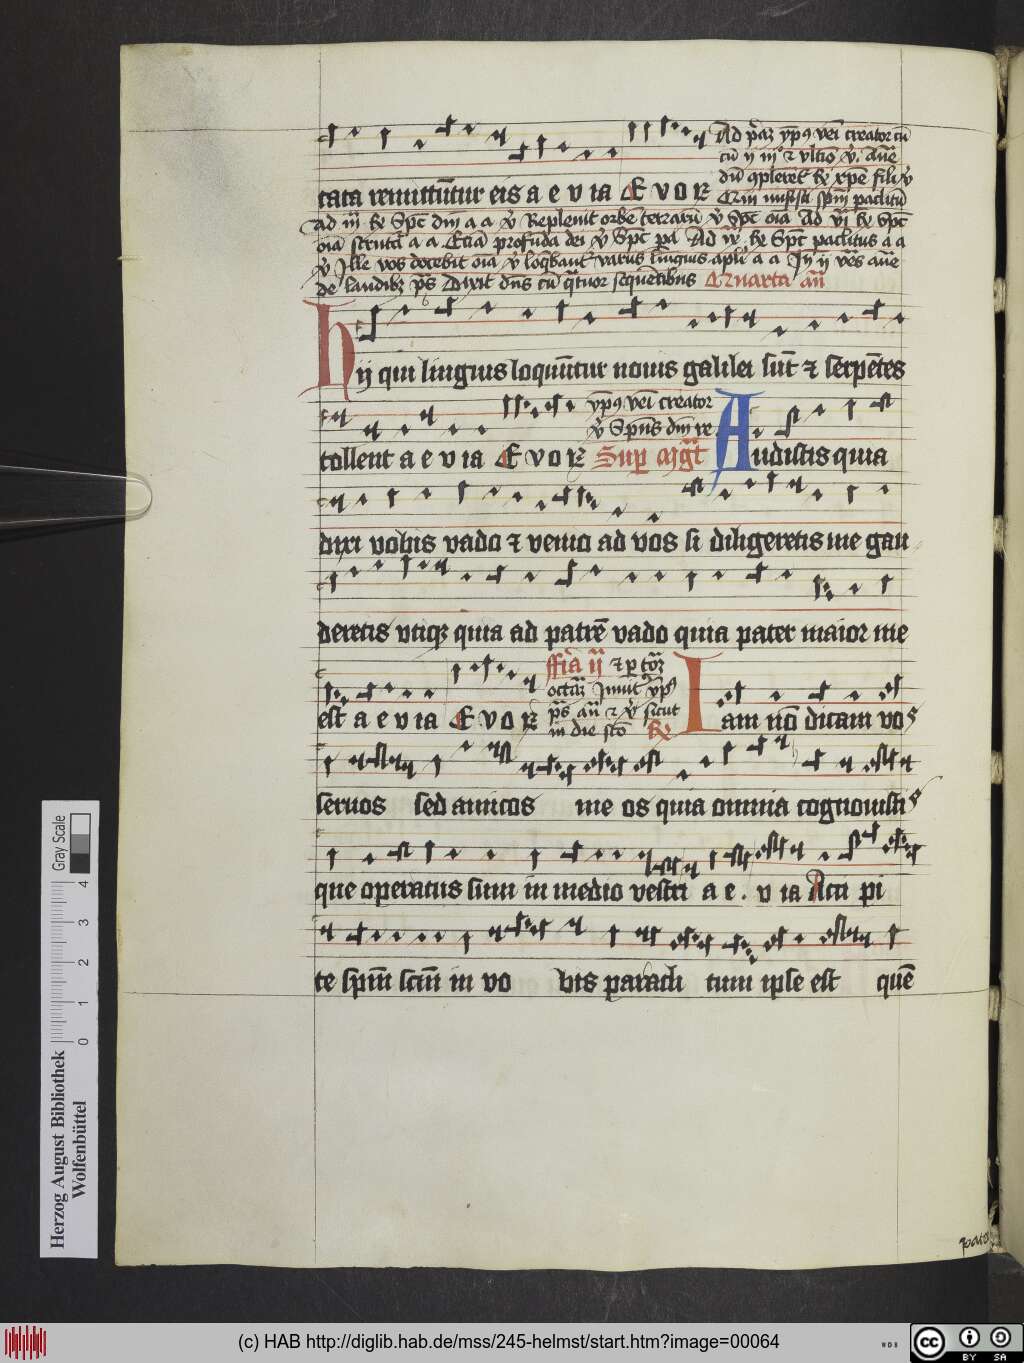 Ad pͥaȝ ypꝰ veī creator cū
cū ij iijͦ ⁊ vltīo ꝟ. Aūe
dn̄i ꝯpleret ℟ xpe fili ꝟ
tata remittūtur eis a e v ia E v o ꝶ Cum misisti spm̄ paclitū
ad iij ℟ Spc̄ dn̄i a a ꝟ Repleuit orbē terraꝝ ꝟ Spc̄ oīa Ad vj ℟ Spc̄
oīa scrutat̄ a a Etiā profūda dei ꝟ Spc̄ pa Ad ℟ Spc̄ paclitus a a
ꝟ Ille vos docebit oīa ꝟ loq̄bant̄ varijs linguis apl̄i a a Jn ij vēs aūe
de laudibȝ pͥs Dixit dn̄s cū q̄tuor sequētibus Quarta an̄
Hij qui linguis loquūtur nouis galilei sūt ⁊ serpētes
ypꝰ veī creator
ꝟ Spūs dn̄i re
tollent a e v ia E v o ꝶ Suꝑ mgt̄ Audistis quia
dixi vobis vado ⁊ venio ad vos si diligeretis me gau
deretis vtiqȝ quia ad patrē vado quia pater maior me
ffīa ij ⁊ ꝑ toꝝ
octāȝ Jnuit̄ ypꝰ
pͥs an̄ ⁊ ꝟ sicut
est a e v ia E v o ꝶ in die scō ℟ Iam nō dicam vos
seruos sed amicos me os quia omnia cognouistis
que operatus sum in medio vestri a e . v ia Acci pi
te spm̄ scm̄ in vo bis paracli tum ipse est quē
Herzog August Bibliothek
Wolfenbüttel
0 1 2 3 4
Gray Scale
(c) HAB http://diglib.hab.de/mss/245-helmst/start.htm?image=00064
WDB
cc BY SA